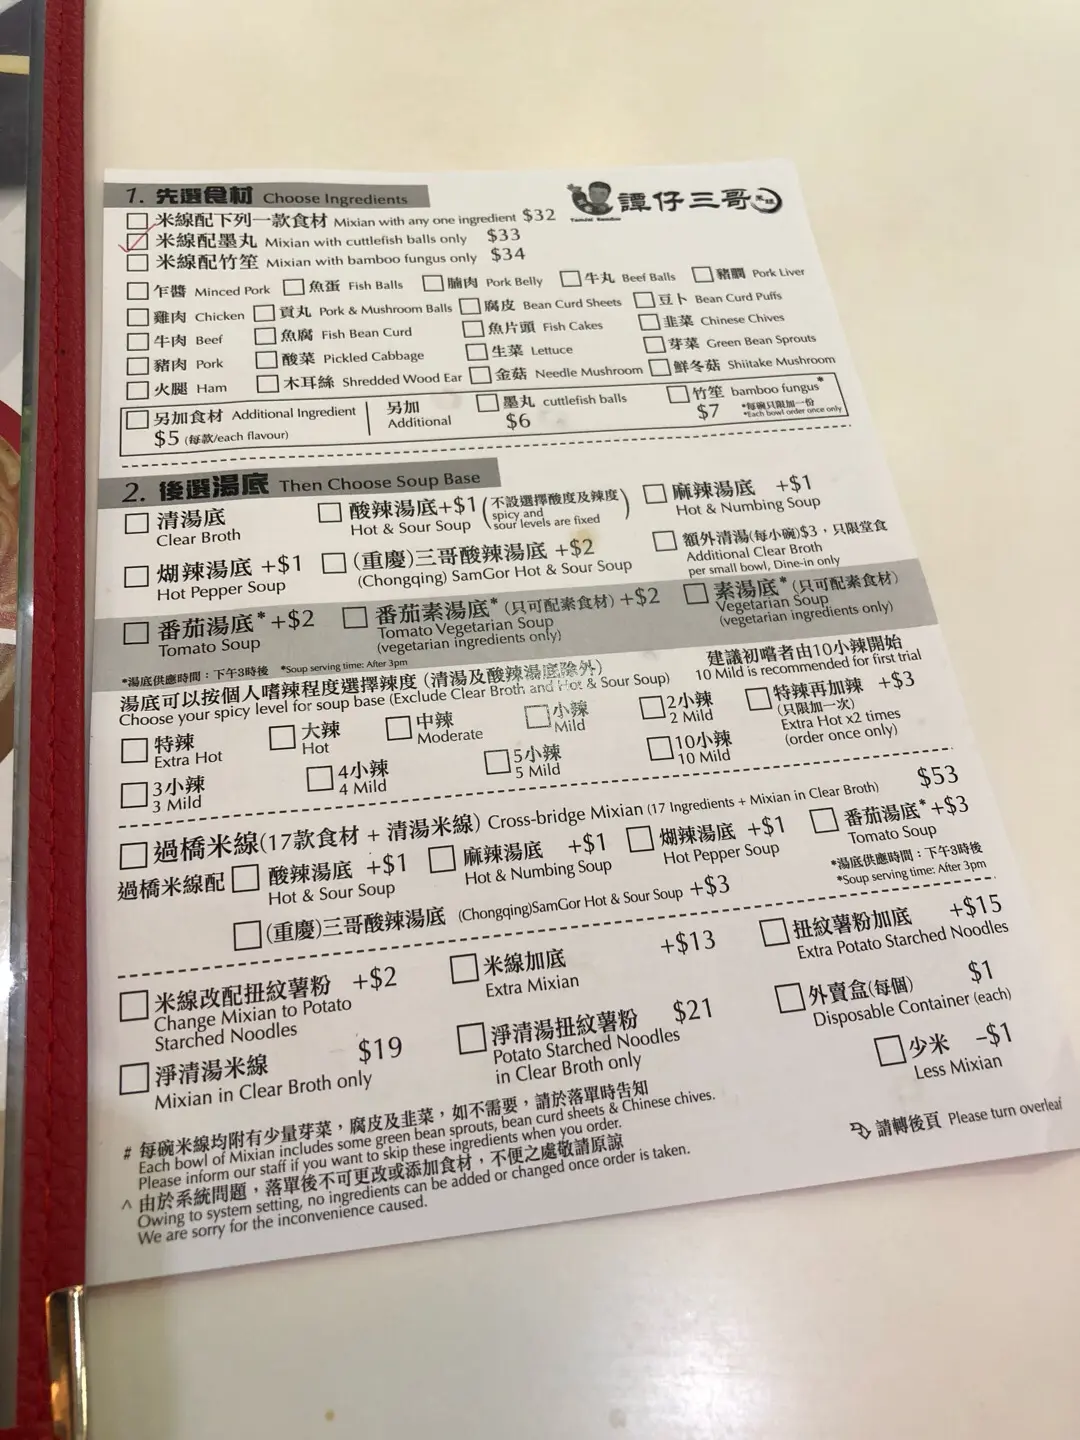 1. 先選食材 Choose Ingredients
譚仔三哥 米線
TamJai SamGor
米線配下列一款食材 Mixian with any one ingredient $32
米線配墨丸 Mixian with cuttlefish balls only $33
米線配竹笙 Mixian with bamboo fungus only $34
乍醬 Minced Pork 魚蛋 Fish Balls 腩肉 Pork Belly 牛丸 Beef Balls 豬膶 Pork Liver
雞肉 Chicken 貢丸 Pork & Mushroom Balls 腐皮 Bean Curd Sheets 豆卜 Bean Curd Puffs
牛肉 Beef 魚腐 Fish Bean Curd 魚片頭 Fish Cakes 韭菜 Chinese Chives
豬肉 Pork 酸菜 Pickled Cabbage 生菜 Lettuce 芽菜 Green Bean Sprouts
火腿 Ham 木耳絲 Shredded Wood Ear 金菇 Needle Mushroom 鮮冬菇 Shiitake Mushroom
另加食材 Additional Ingredient 另加 墨丸 cuttlefish balls 竹笙 bamboo fungus*
$5 (每款/each flavour) Additional $6 $7 *每碗只限加一份
*Each bowl order once only
2. 後選湯底 Then Choose Soup Base
清湯底 酸辣湯底+$1 (不設選擇酸度及辣度 麻辣湯底 +$1
Clear Broth Hot & Sour Soup spicy and Hot & Numbing Soup
sour levels are fixed)
煳辣湯底 +$1 (重慶)三哥酸辣湯底 +$2 額外清湯(每小碗)$3，只限堂食
Hot Pepper Soup (Chongqing) SamGor Hot & Sour Soup Additional Clear Broth
per small bowl, Dine-in only
番茄湯底* +$2 番茄素湯底* (只可配素食材) +$2 素湯底* (只可配素食材)
Tomato Soup Tomato Vegetarian Soup Vegetarian Soup
(vegetarian ingredients only) (vegetarian ingredients only)
*湯底供應時間：下午3時後 *Soup serving time: After 3pm
湯底可以按個人嗜辣程度選擇辣度 (清湯及酸辣湯底除外) 建議初嚐者由10小辣開始
Choose your spicy level for soup base (Exclude Clear Broth and Hot & Sour Soup) 10 Mild is recommended for first trial
特辣 大辣 中辣 小辣 2小辣 特辣再加辣 +$3
Extra Hot Hot Moderate Mild 2 Mild (只限加一次)
Extra Hot x2 times
(order once only)
3小辣 4小辣 5小辣 10小辣
3 Mild 4 Mild 5 Mild 10 Mild
過橋米線(17款食材 + 清湯米線) Cross-bridge Mixian (17 Ingredients + Mixian in Clear Broth) $53
過橋米線配 酸辣湯底 +$1 麻辣湯底 +$1 煳辣湯底 +$1 番茄湯底* +$3
Hot & Sour Soup Hot & Numbing Soup Hot Pepper Soup Tomato Soup
(重慶)三哥酸辣湯底 (Chongqing)SamGor Hot & Sour Soup +$3 *湯底供應時間：下午3時後
*Soup serving time: After 3pm
米線改配扭紋薯粉 +$2 米線加底 +$13 扭紋薯粉加底 +$15
Change Mixian to Potato Extra Mixian Extra Potato Starched Noodles
Starched Noodles
淨清湯米線 $19 淨清湯扭紋薯粉 $21 外賣盒(每個) $1
Mixian in Clear Broth only Potato Starched Noodles Disposable Container (each)
in Clear Broth only
少米 -$1
Less Mixian
# 每碗米線均附有少量芽菜，腐皮及韭菜，如不需要，請於落單時告知
Each bowl of Mixian includes some green bean sprouts, bean curd sheets & Chinese chives.
Please inform our staff if you want to skip these ingredients when you order.
^ 由於系統問題，落單後不可更改或添加食材，不便之處敬請原諒
Owing to system setting, no ingredients can be added or changed once order is taken.
We are sorry for the inconvenience caused.
請轉後頁 Please turn overleaf